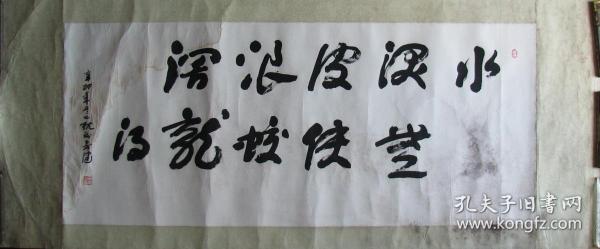 水深波浪濶
無使蛟龍得
辛卯年
孔夫子旧书网
www.kongfz.com